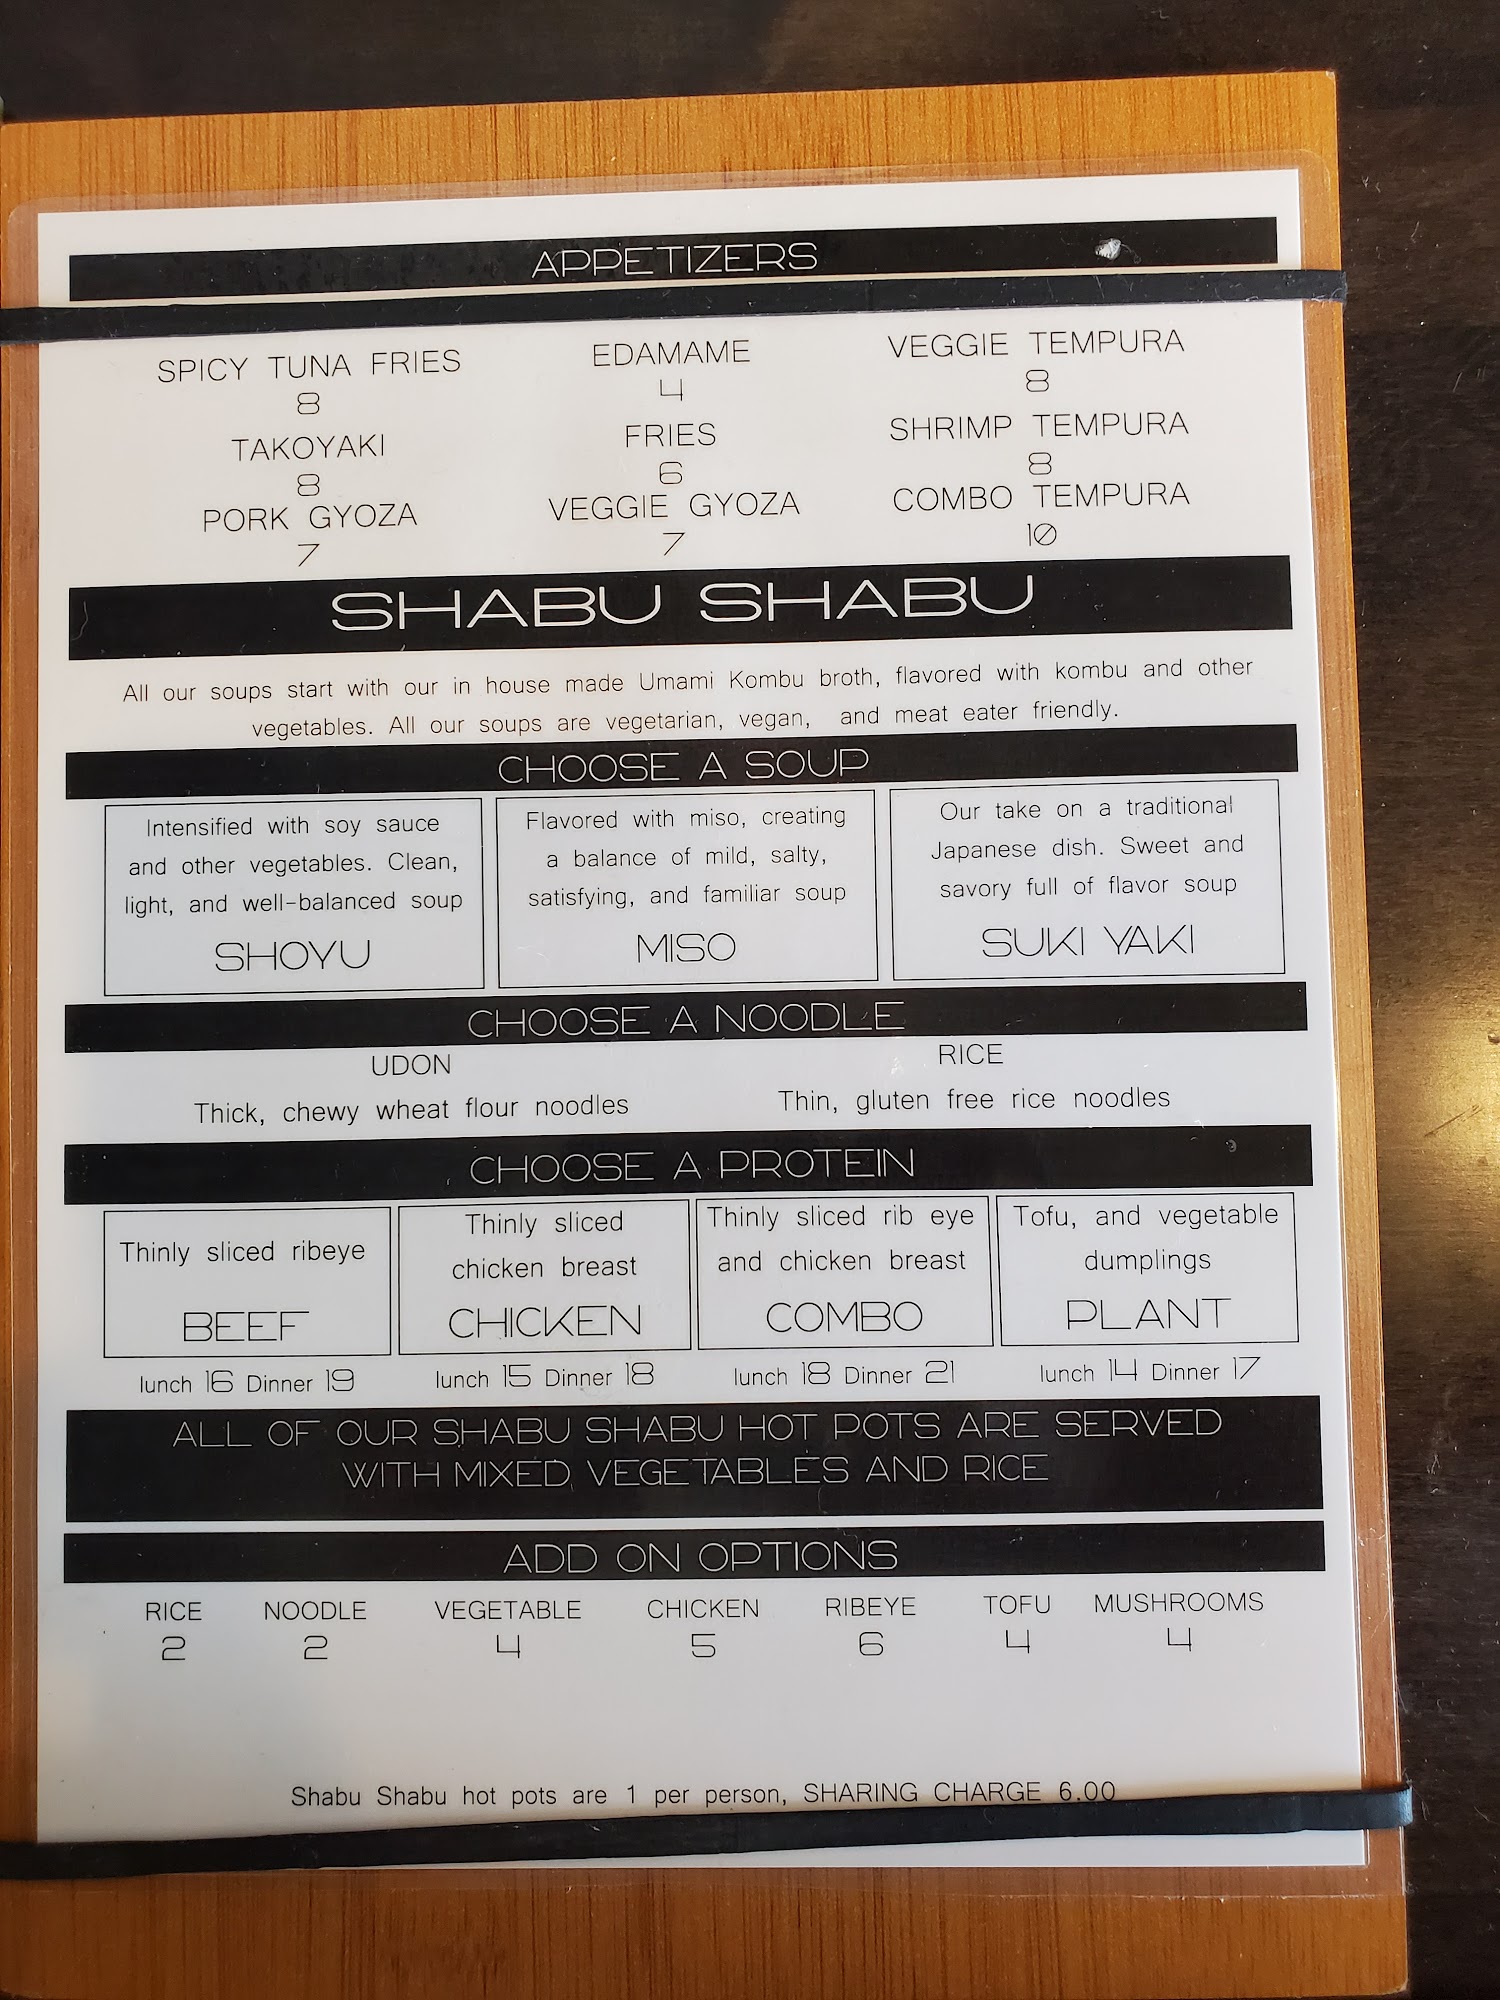 APPETIZERS
SPICY TUNA FRIES EDAMAME VEGGIE TEMPURA
8 4 8
TAKOYAKI FRIES SHRIMP TEMPURA
8 6 8
PORK GYOZA VEGGIE GYOZA COMBO TEMPURA
7 7 10
SHABU SHABU
All our soups start with our in house made Umami Kombu broth, flavored with kombu and other
vegetables. All our soups are vegetarian, vegan, and meat eater friendly.
CHOOSE A SOUP
Intensified with soy sauce
and other vegetables. Clean,
light, and well-balanced soup
SHOYU
Flavored with miso, creating
a balance of mild, salty,
satisfying, and familiar soup
MISO
Our take on a traditional
Japanese dish. Sweet and
savory full of flavor soup
SUKI YAKI
CHOOSE A NOODLE
UDON
Thick, chewy wheat flour noodles
RICE
Thin, gluten free rice noodles
CHOOSE A PROTEIN
Thinly sliced ribeye
BEEF
lunch 16 Dinner 19
Thinly sliced
chicken breast
CHICKEN
lunch 15 Dinner 18
Thinly sliced rib eye
and chicken breast
COMBO
lunch 18 Dinner 21
Tofu, and vegetable
dumplings
PLANT
lunch 14 Dinner 17
ALL OF OUR SHABU SHABU HOT POTS ARE SERVED
WITH MIXED VEGETABLES AND RICE
ADD ON OPTIONS
RICE NOODLE VEGETABLE CHICKEN RIBEYE TOFU MUSHROOMS
2 2 4 5 6 4 4
Shabu Shabu hot pots are 1 per person, SHARING CHARGE 6.00